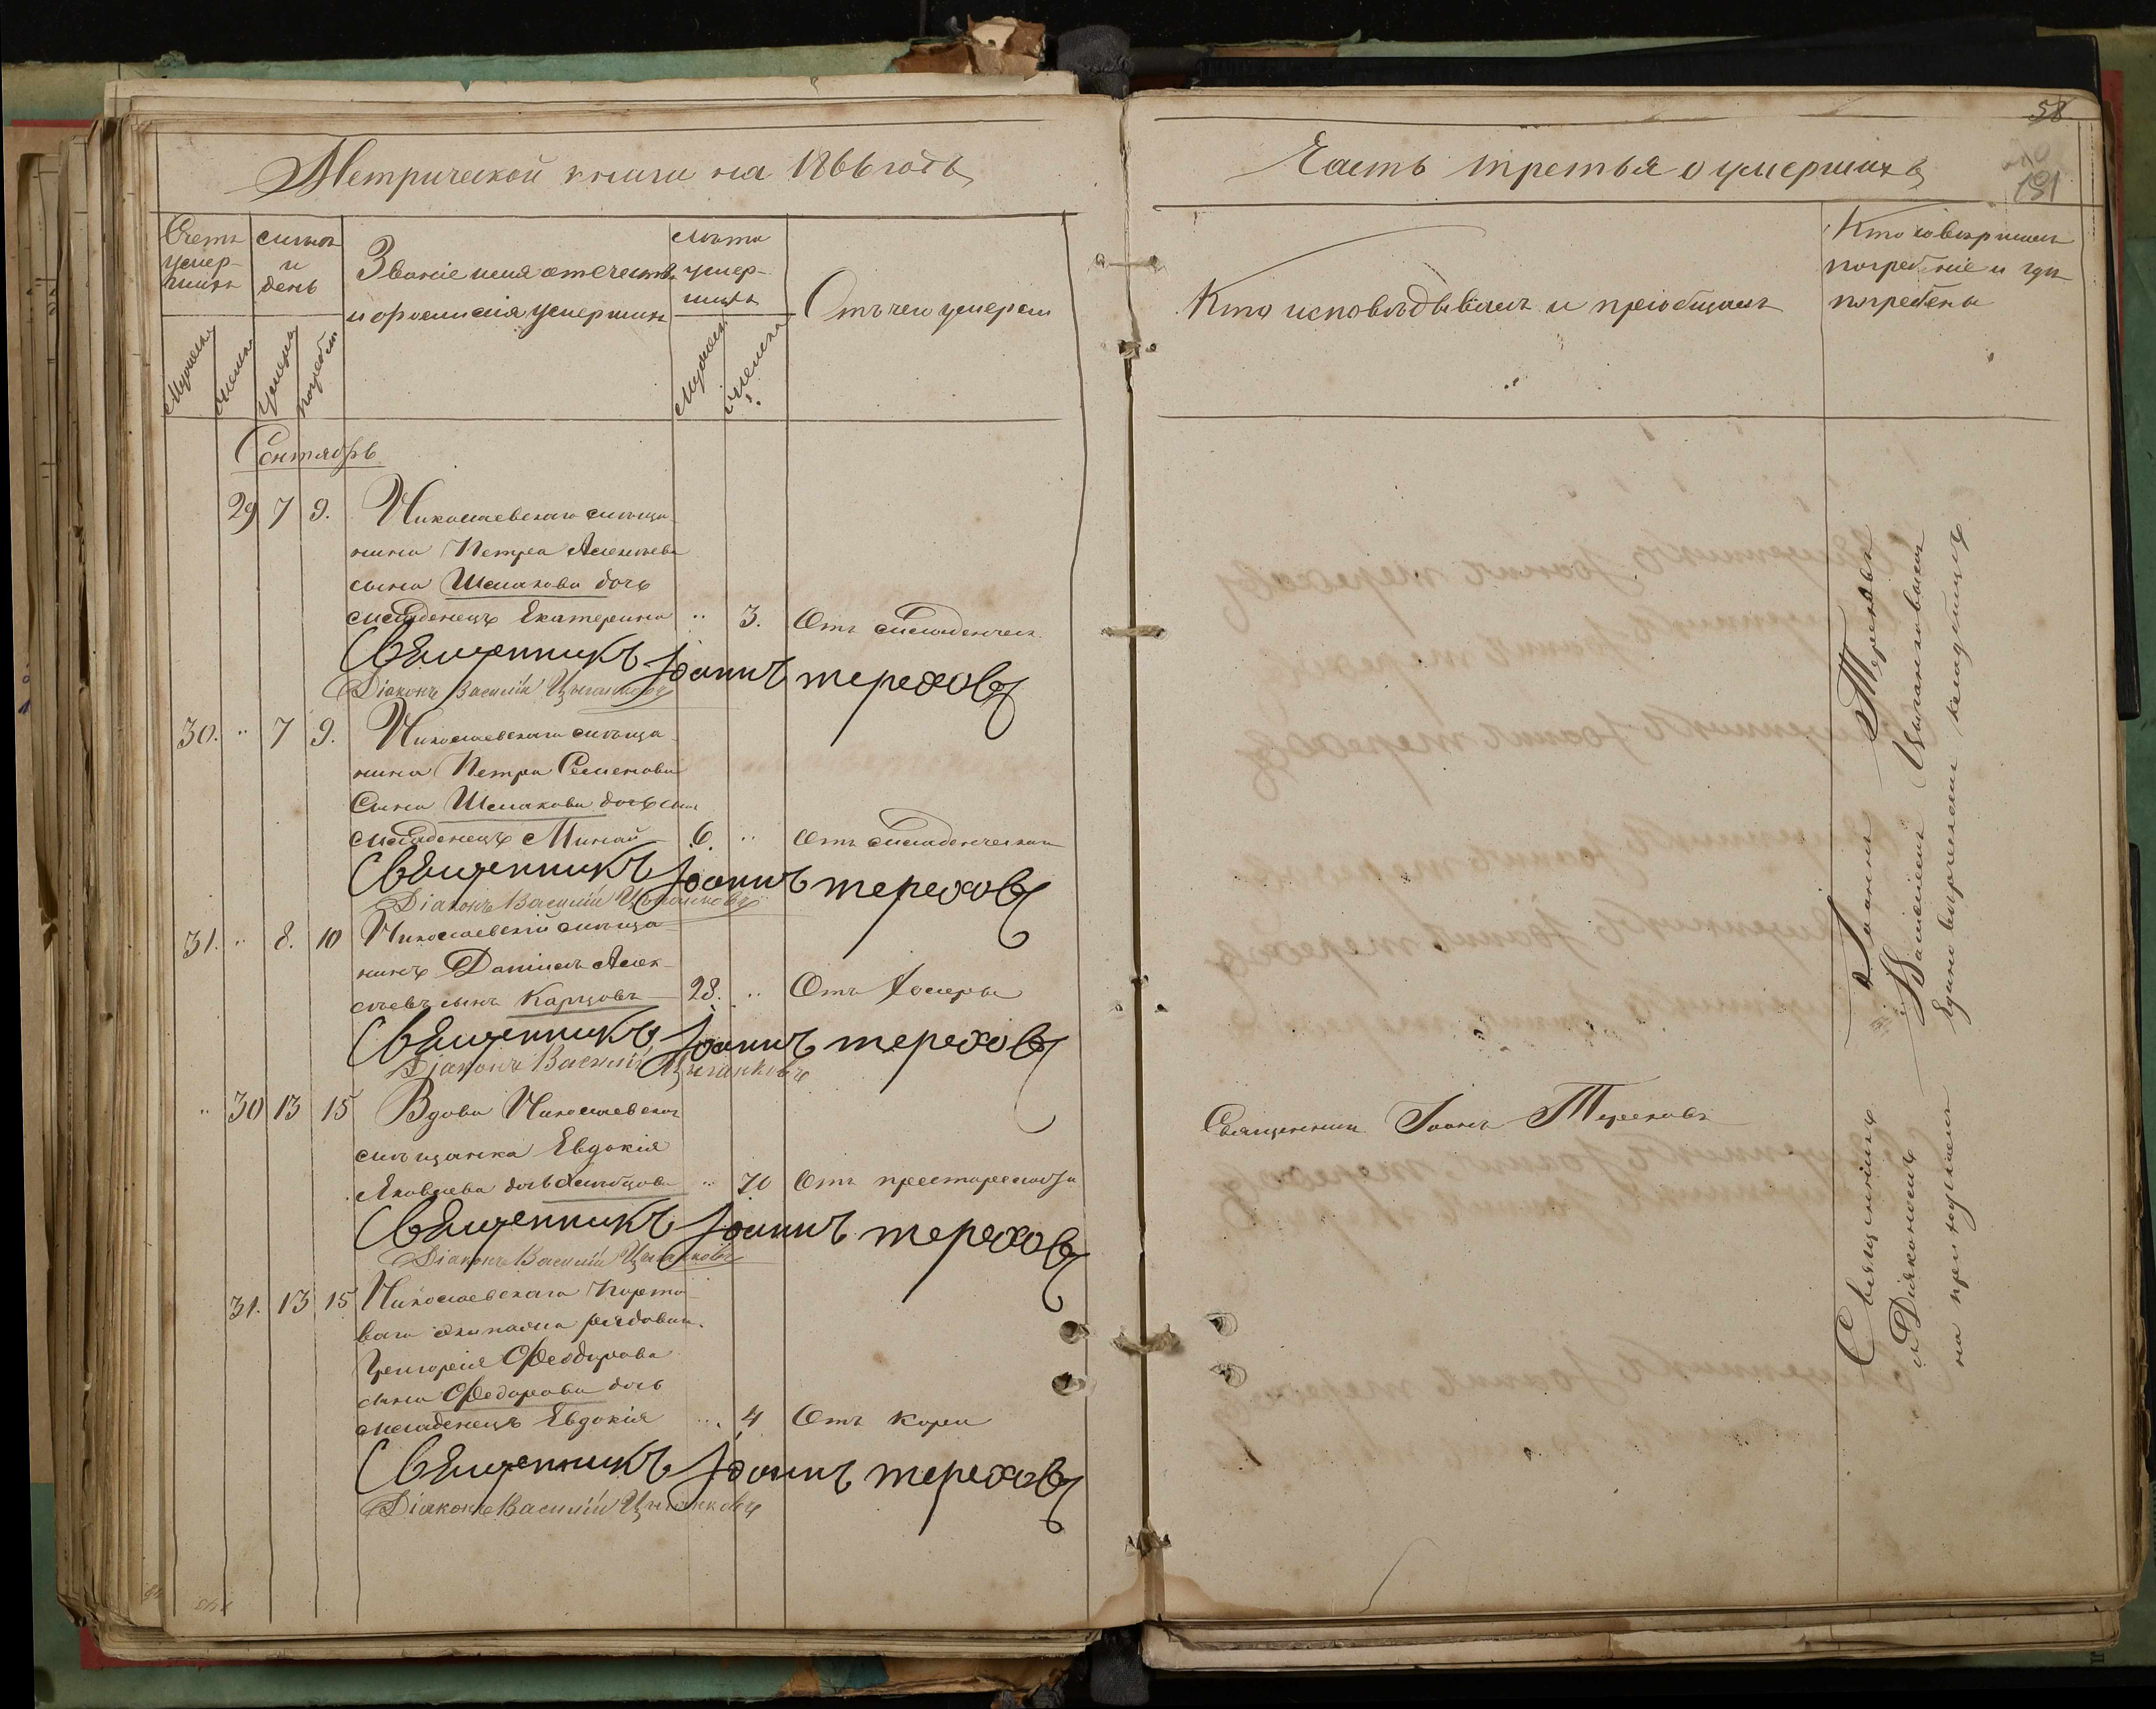 Метрической книги на 1866 годъ
Счетъ умер-
шихъ
Мужеска
Женска
мѣсяцъ
и
день
умерш
погреб
Званіе имя отечество
и фамилія умершихъ
лѣта
умер-
шихъ
Мужеска
женска
Отъ чего умерли
Сентябрь
29 7 9. Николаевскаго мѣща-
нина Петра Алексѣева
сына Шмакова дочь
младенецъ Екатерина .. 3. Отъ младенческ.
Священникъ Іоаннъ тереховъ
Діаконъ Василій Цыганковъ
30. .. 7 9. Николаевскаго мѣща-
нина Петра Семенова
Сына Шмакова
младенецъ Минай 6. .. Отъ младенческой
Священникъ Іоаннъ тереховъ
Діаконъ Василій Цыганковъ
31. .. 8. 10 Николаевскій мѣща-
нинъ Даніилъ Алек-
сѣевъ сынъ Карцовъ 28. .. Отъ Холеры
Священникъ Іоаннъ тереховъ
Діаконъ Василій Цыганковъ
.. 30 13 15 Вдова Николаевская
мѣщанка Евдокія
Яковлева дочь .. 70 Отъ престарелости
Священникъ Іоаннъ тереховъ
Діаконъ Василій Цыганковъ
31. 13 15 Николаевскаго
рядового
Григорія Феодорова
сына Федорова дочь
младенецъ Евдокія .. 4 Отъ кори
Священникъ Іоаннъ тереховъ
Діаконъ Василій Цыганковъ
58
191
Часть третья о умершихъ
Кто исповѣдывалъ и пріобщалъ
Кто совершалъ
погребеніе и гдѣ
погребены
Священникъ Іоаннъ Тереховъ
Священникъ Іоаннъ Тереховъ
съ Діакономъ Василіемъ Цыганковымъ
на приходскомъ Единоверческомъ кладбищѣ